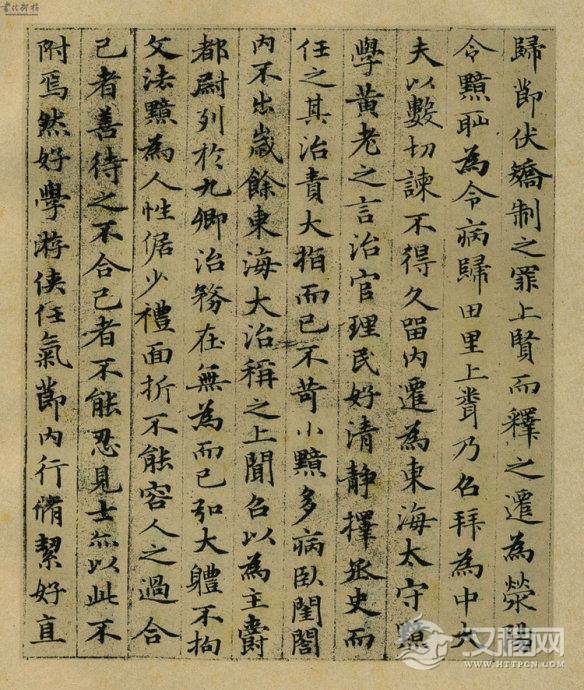 書法欣賞
歸節伏矯制之罪上賢而釋之遷為滎陽
令黯恥為令病歸田里上聞乃召拜為中大
夫以數切諫不得久留內遷為東海太守黯
學黃老之言治官理民好清靜擇丞史而
任之其治責大指而已不苛小黯多病臥閨閤
內不出歲餘東海大治稱之上聞召以為主爵
都尉列於九卿治務在無為而已弘大體不拘
文法黯為人性倨少禮面折不能容人之過合
己者善待之不合己者不能忍見士亦以此不
附焉然好學游俠任氣節內行脩絜好直
汉楷网
WWW.HTTPCN.COM